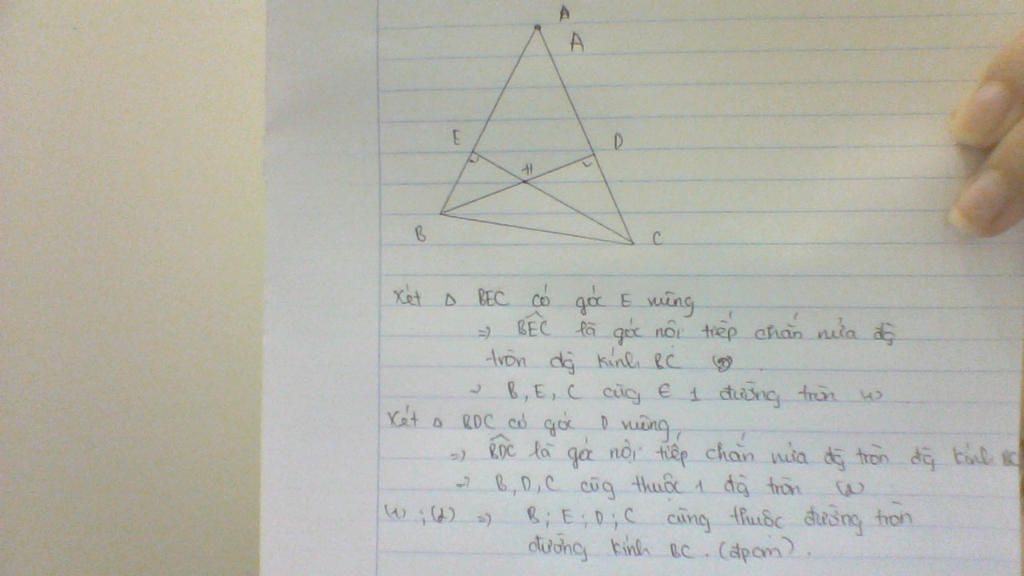 A
A
E
D
H
B
C
Xét Δ BEC có góc E vuông
=> BEC là góc nội tiếp chắn nửa đg
tròn đg kính BC
-> B, E, C cùng ∈ 1 đường tròn (1)
Xét Δ BDC có góc D vuông
=> BDC là góc nội tiếp chắn nửa đg tròn đg kính BC
-> B, D, C cùng thuộc 1 đg tròn (2)
(1) ; (2) => B ; E ; D ; C cùng thuộc đường tròn
đường kính BC. (đpcm).